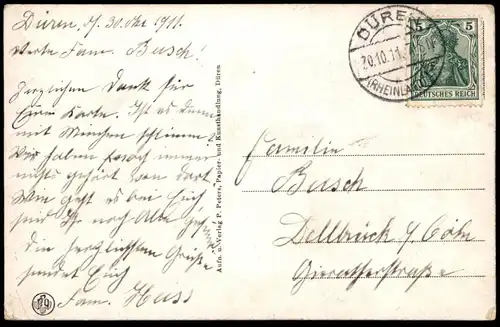 Düren, d. 30. Okt 1911.
Werte Fam. Busch!
Herzlichen Dank für
Eure Karte. Ist es denn
mit München schlimm.
Wir haben noch immer
nichts gehört von dort
Wie geht es bei Euch
seid Ihr noch Alle
Die herzlichsten Grüße
sendet Euch
Fam. Hass
Aufn. u. Verlag P. Peters, Papier- und Kunsthandlung, Düren
DÜREN
20.10.11.
(RHEINLAND)
5 5
DEUTSCHES REICH
Familie
Busch
Dellbrück b/ Cöln
Gierather­straße